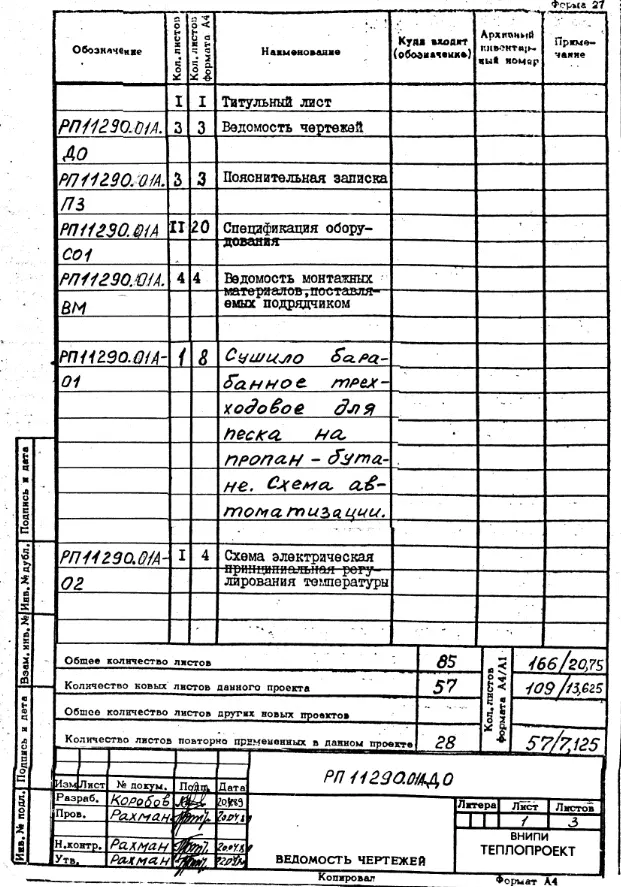 Форма 27
Обозначение
Кол. листов
Кол. листов формата А4
Наименование
Куда входит (обозначение)
Архивный инвентарный номер
Примечание
I I Титульный лист
РП11290.01А. 3 3 Ведомость чертежей
ДО
РП11290.01А. 3 3 Пояснительная записка
ПЗ
РП11290.01А II 20 Спецификация обору-
дования
СО1
РП11290.01А. 4 4 Ведомость монтажных
материалов, поставля-
ВМ емых подрядчиком
РП11290.01А- 1 8 Сушило бара-
01 банное трех-
ходовое для
песка на
пропан-бута-
не. Схема ав-
томатизации.
РП11290.01А- I 4 Схема электрическая
принципиальная регу-
02 лирования температуры
Общее количество листов 85 166/20,75
Количество новых листов данного проекта 57 109/13,625
Общее количество листов других новых проектов
Количество листов повторно примененных в данном проекте 28 57/7,125
Кол. листов формата А4/А1
Подпись и дата
Инв. № дубл.
Взам. инв. №
Подпись и дата
Инв. № подл.
РП 11290.01А.ДО
Изм Лист № докум. Подп. Дата
Разраб. Коробов
Пров. Рахман
Н.контр. Рахман
Утв. Рахман
ВЕДОМОСТЬ ЧЕРТЕЖЕЙ
Литера Лист Листов
1 3
ВНИПИ
ТЕПЛОПРОЕКТ
Копировал
Формат А4